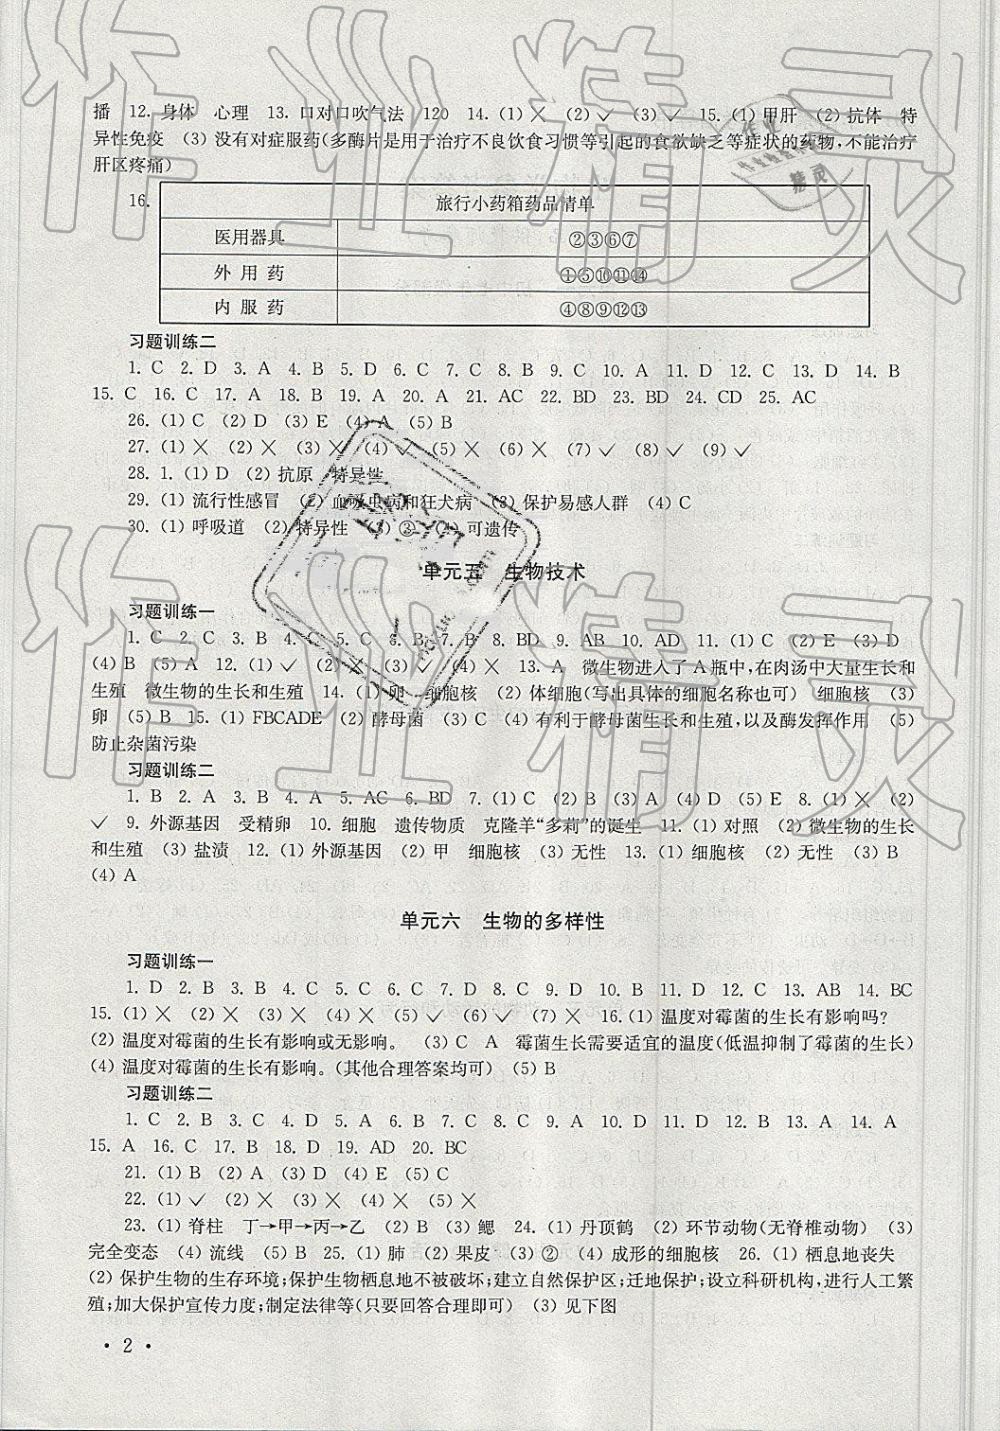 播 12. 身体 心理 13. 口对口吹气法 120 14. (1)× (2)✓ (3)✓ 15. (1)甲肝 (2)抗体 特
异性免疫 (3)没有对症服药(多酶片是用于治疗不良饮食习惯等引起的食欲缺乏等症状的药物,不能治疗
肝区疼痛)
16.
旅行小药箱药品清单
医用器具 ②③⑥⑦
外用药 ①⑤⑩⑪⑭
内服药 ④⑧⑨⑫⑬
习题训练二
1. C 2. D 3. A 4. B 5. D 6. C 7. C 8. B 9. C 10. A 11. D 12. C 13. D 14. B
15. C 16. C 17. A 18. B 19. A 20. A 21. AC 22. BD 23. BD 24. CD 25. AC
26. (1)C (2)D (3)E (4)A (5)B
27. (1)× (2)× (3)× (4)✓ (5)× (6)× (7)✓ (8)✓ (9)✓
28. 1. (1)D (2)抗原 特异性
29. (1)流行性感冒 (2)血吸虫病和狂犬病 (3)保护易感人群 (4)C
30. (1)呼吸道 (2)特异性 (3)② (4)可遗传
单元五 生物技术
习题训练一
1. C 2. C 3. B 4. C 5. C 6. B 7. B 8. BD 9. AB 10. AD 11. (1)C (2)E (3)D
(4)B (5)A 12. (1)✓ (2)× (3)✓ (4)× 13. A 微生物进入了A瓶中,在肉汤中大量生长和
生殖 微生物的生长和生殖 14. (1)卵 细胞核 (2)体细胞(写出具体的细胞名称也可) 细胞核 (3)
卵 (5)B 15. (1)FBCADE (2)酵母菌 (3)C (4)有利于酵母菌生长和生殖,以及酶发挥作用 (5)
防止杂菌污染
习题训练二
1. B 2. A 3. B 4. A 5. AC 6. BD 7. (1)C (2)B (3)A (4)D (5)E 8. (1)× (2)
✓ 9. 外源基因 受精卵 10. 细胞 遗传物质 克隆羊“多莉”的诞生 11. (1)对照 (2)微生物的生长
和生殖 (3)盐渍 12. (1)外源基因 (2)甲 细胞核 (3)无性 13. (1)细胞核 (2)无性 (3)B
(4)A
单元六 生物的多样性
习题训练一
1. D 2. B 3. B 4. C 5. C 6. C 7. D 8. C 9. D 10. B 11. D 12. C 13. AB 14. BC
15. (1)× (2)× (3)× (4)× (5)✓ (6)✓ (7)× 16. (1)温度对霉菌的生长有影响吗?
(2)温度对霉菌的生长有影响或无影响。 (3)C A 霉菌生长需要适宜的温度(低温抑制了霉菌的生长)
(4)温度对霉菌的生长有影响。(其他合理答案均可) (5)B
习题训练二
1. C 2. B 3. C 4. D 5. A 6. B 7. C 8. C 9. A 10. D 11. D 12. B 13. A 14. A
15. A 16. C 17. B 18. D 19. AD 20. BC
21. (1)B (2)A (3)D (4)E (5)C
22. (1)✓ (2)× (3)× (4)× (5)×
23. (1)脊柱 丁→甲→丙→乙 (2)B (3)鳃 24. (1)丹顶鹤 (2)环节动物(无脊椎动物) (3)
完全变态 (4)流线 (5)B 25. (1)肺 (2)果皮 (3)② (4)成形的细胞核 26. (1)栖息地丧失
(2)保护生物的生存环境;保护生物栖息地不被破坏;建立自然保护区;迁地保护;设立科研机构,进行人工繁
殖;加大保护宣传力度;制定法律等(只要回答合理即可) (3)见下图
· 2 ·
作业精灵
作业精灵